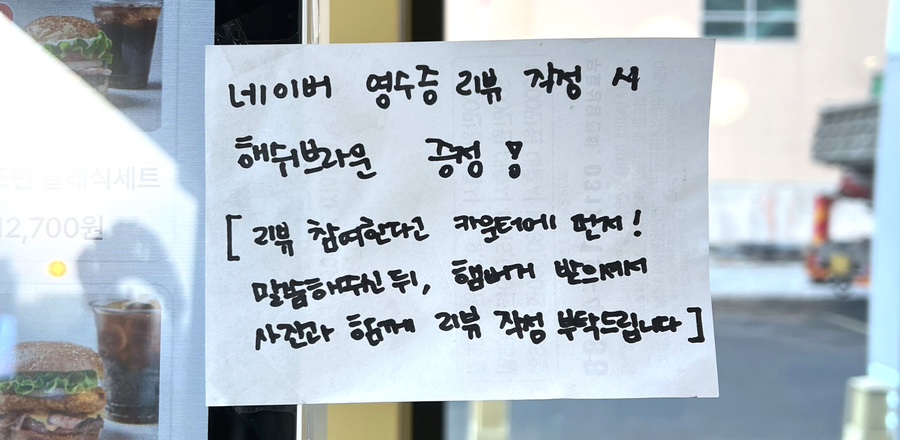 네이버 영수증 리뷰 작성 시
해쉬브라운 증정!
[ 리뷰 참여한다고 카운터에 먼저!
말씀해주신 뒤, 햄버거 받으셔서
사진과 함께 리뷰 작성 부탁드립니다 ]
클래식세트
12,700원